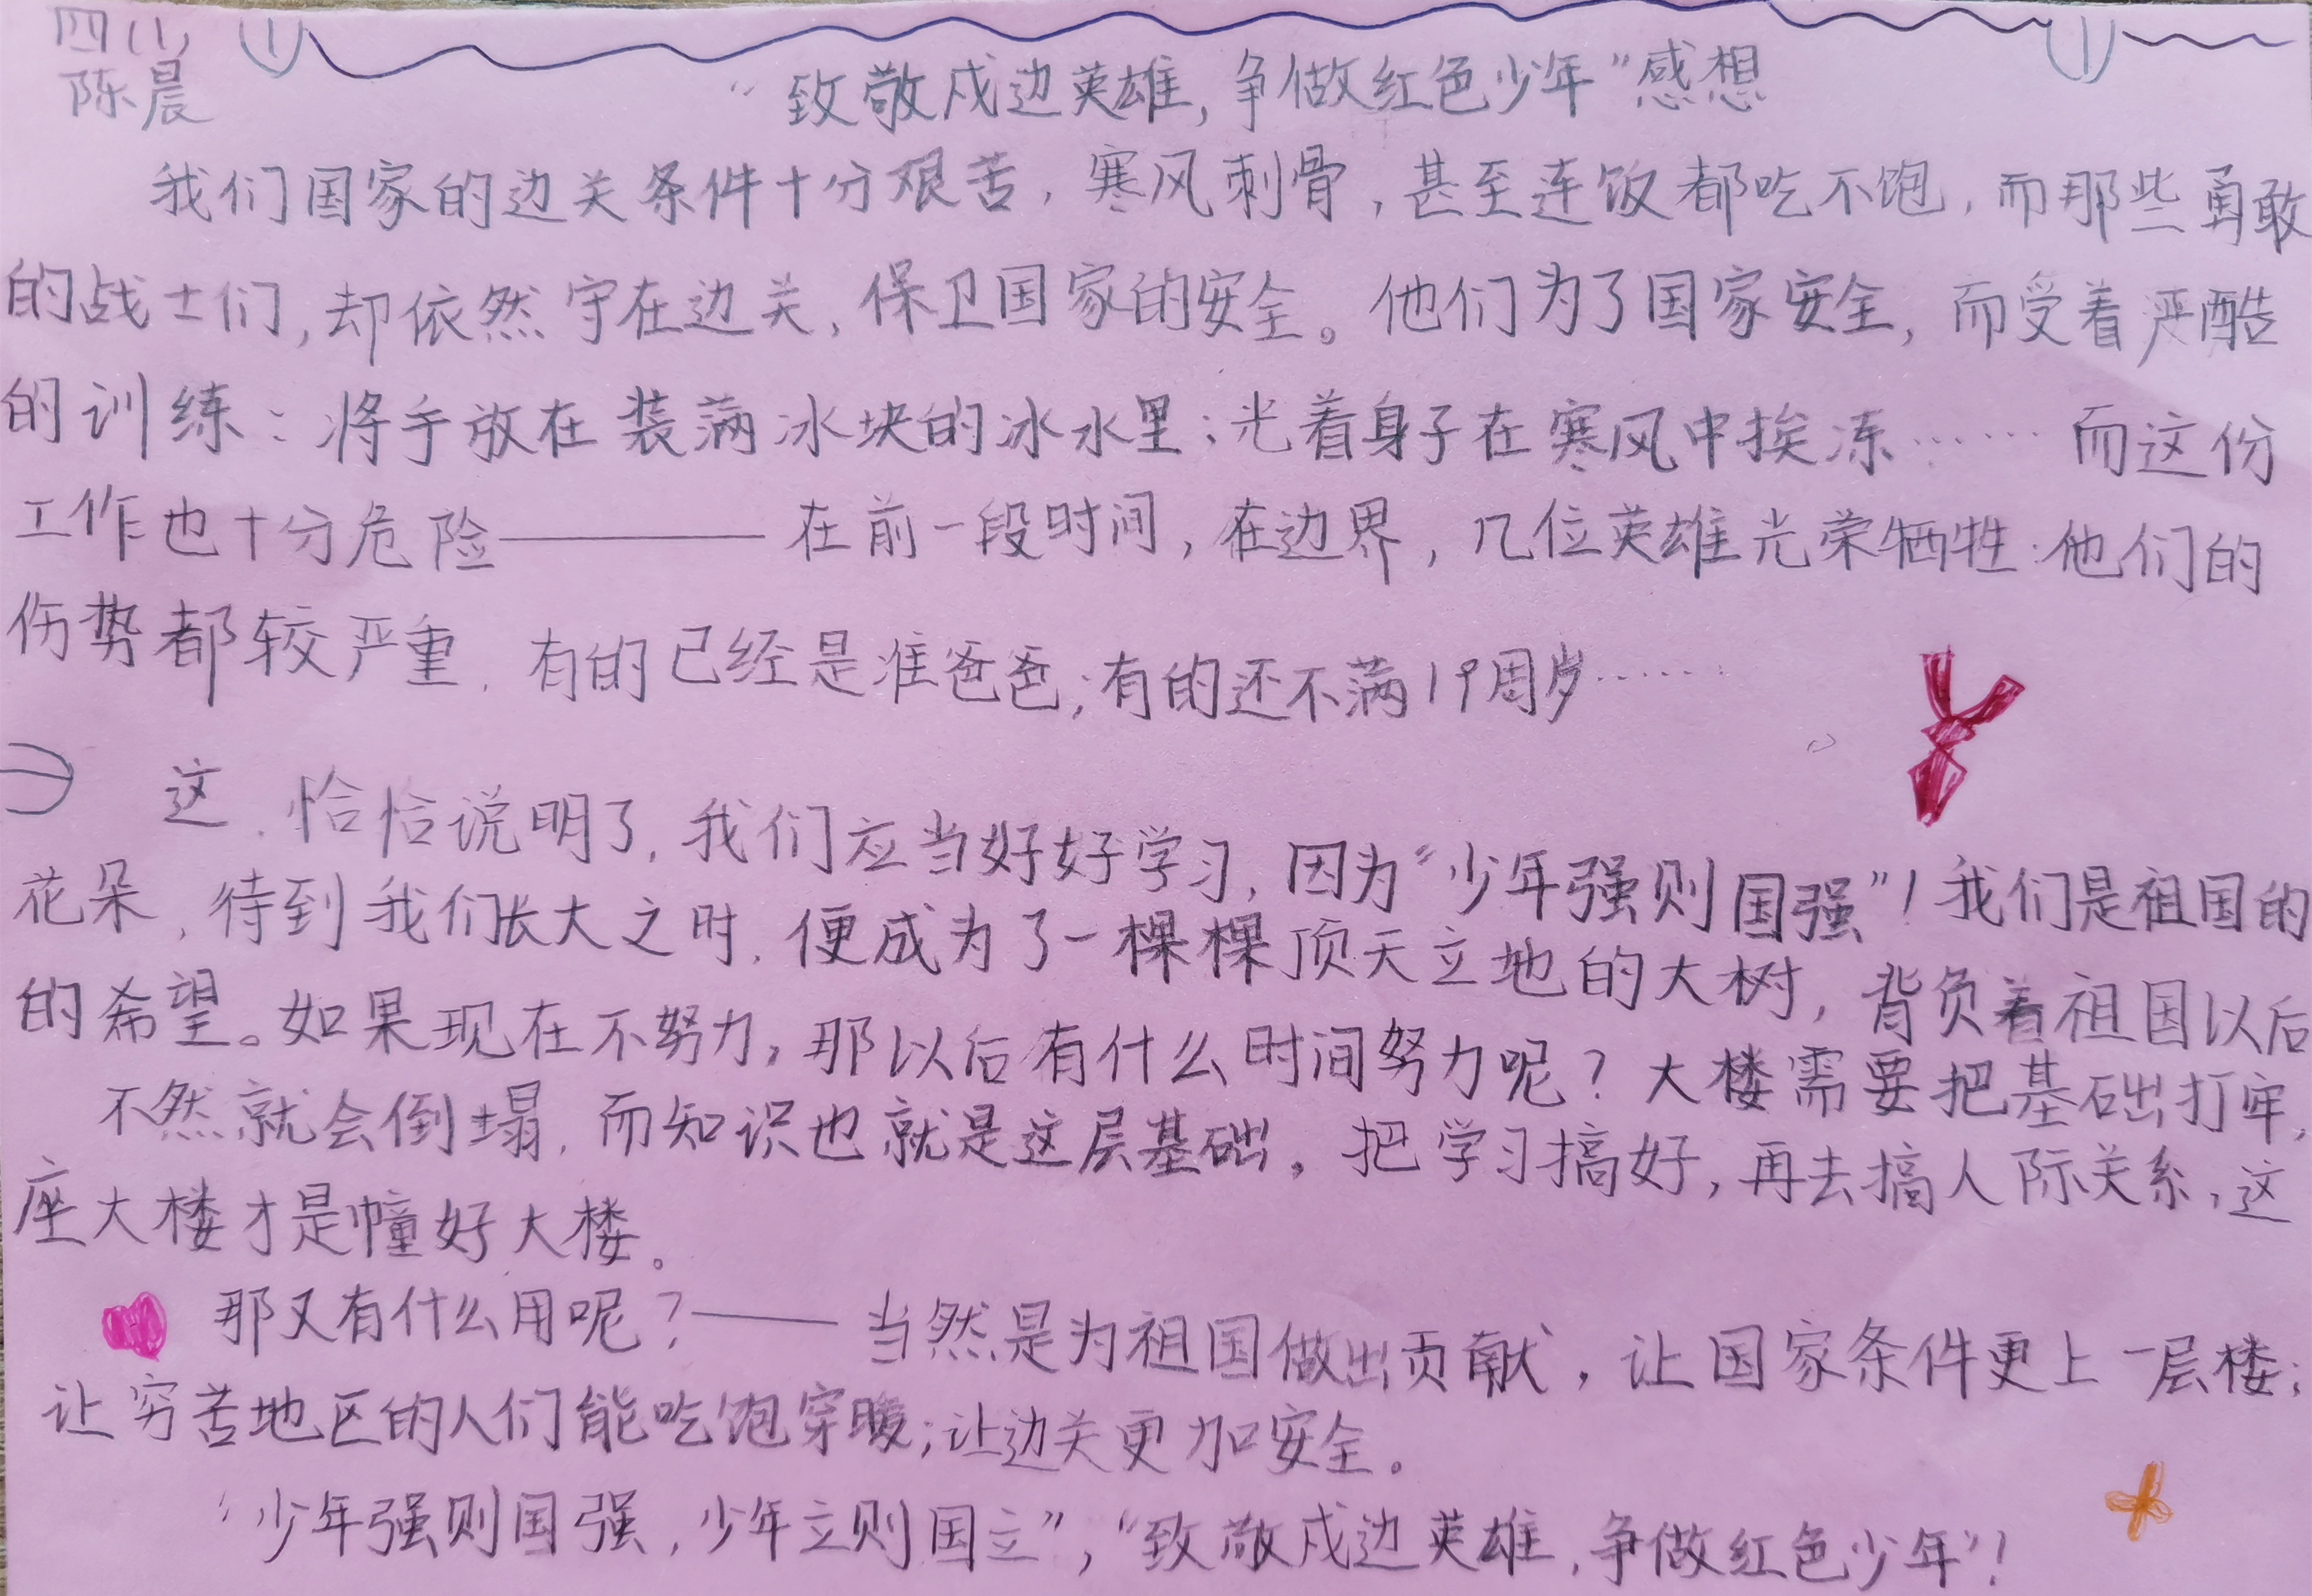 四(1)
陈晨
“致敬戍边英雄,争做红色少年”感想
我们国家的边关条件十分艰苦,寒风刺骨,甚至连饭都吃不饱,而那些勇敢
的战士们,却依然守在边关,保卫国家的安全。他们为了国家安全,而受着严酷
的训练:将手放在装满冰块的冰水里;光着身子在寒风中挨冻……而这份
工作也十分危险——在前一段时间,在边界,几位英雄光荣牺牲.他们的
伤势都较严重,有的已经是准爸爸;有的还不满19周岁……
这,恰恰说明了,我们应当好好学习,因为“少年强则国强”!我们是祖国的
花朵,待到我们长大之时,便成为了一棵棵顶天立地的大树,背负着祖国以后
的希望。如果现在不努力,那以后有什么时间努力呢?大楼需要把基础打牢,
不然就会倒塌,而知识也就是这层基础,把学习搞好,再去搞人际关系,这
座大楼才是幢好大楼。
那又有什么用呢?——当然是为祖国做出贡献,让国家条件更上一层楼;
让穷苦地区的人们能吃饱穿暖;让边关更加安全。
“少年强则国强,少年立则国立”,“致敬戍边英雄,争做红色少年”!